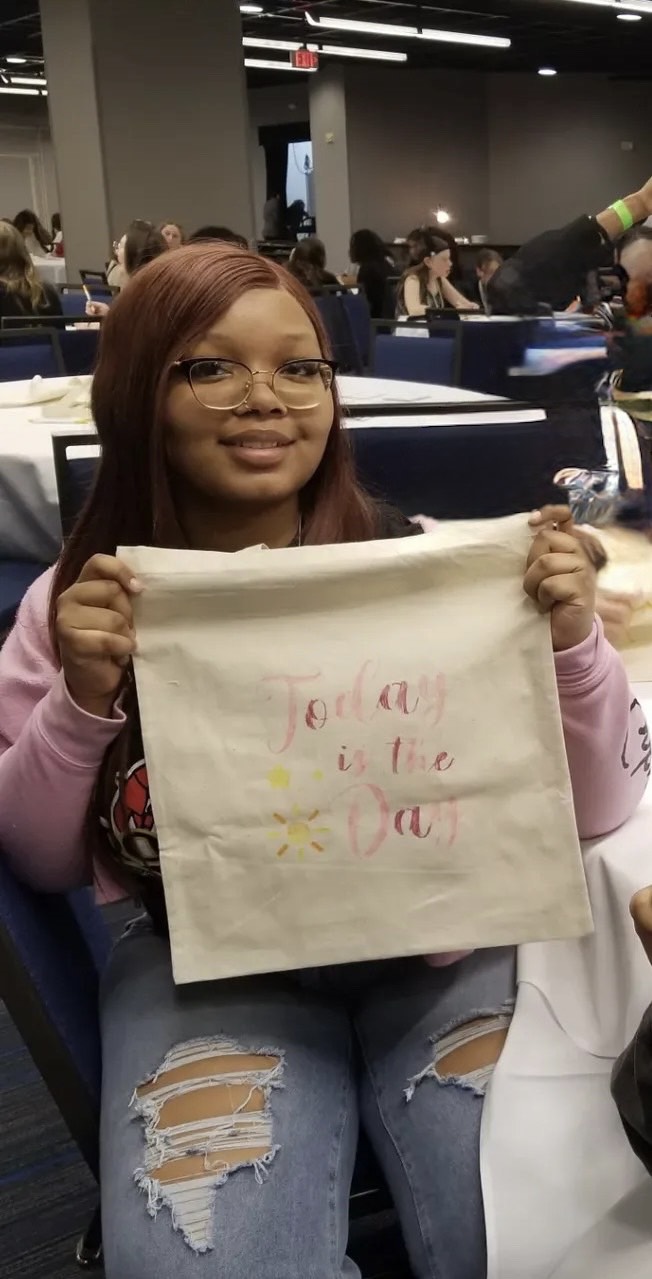 EXIT
Today
is the
Day